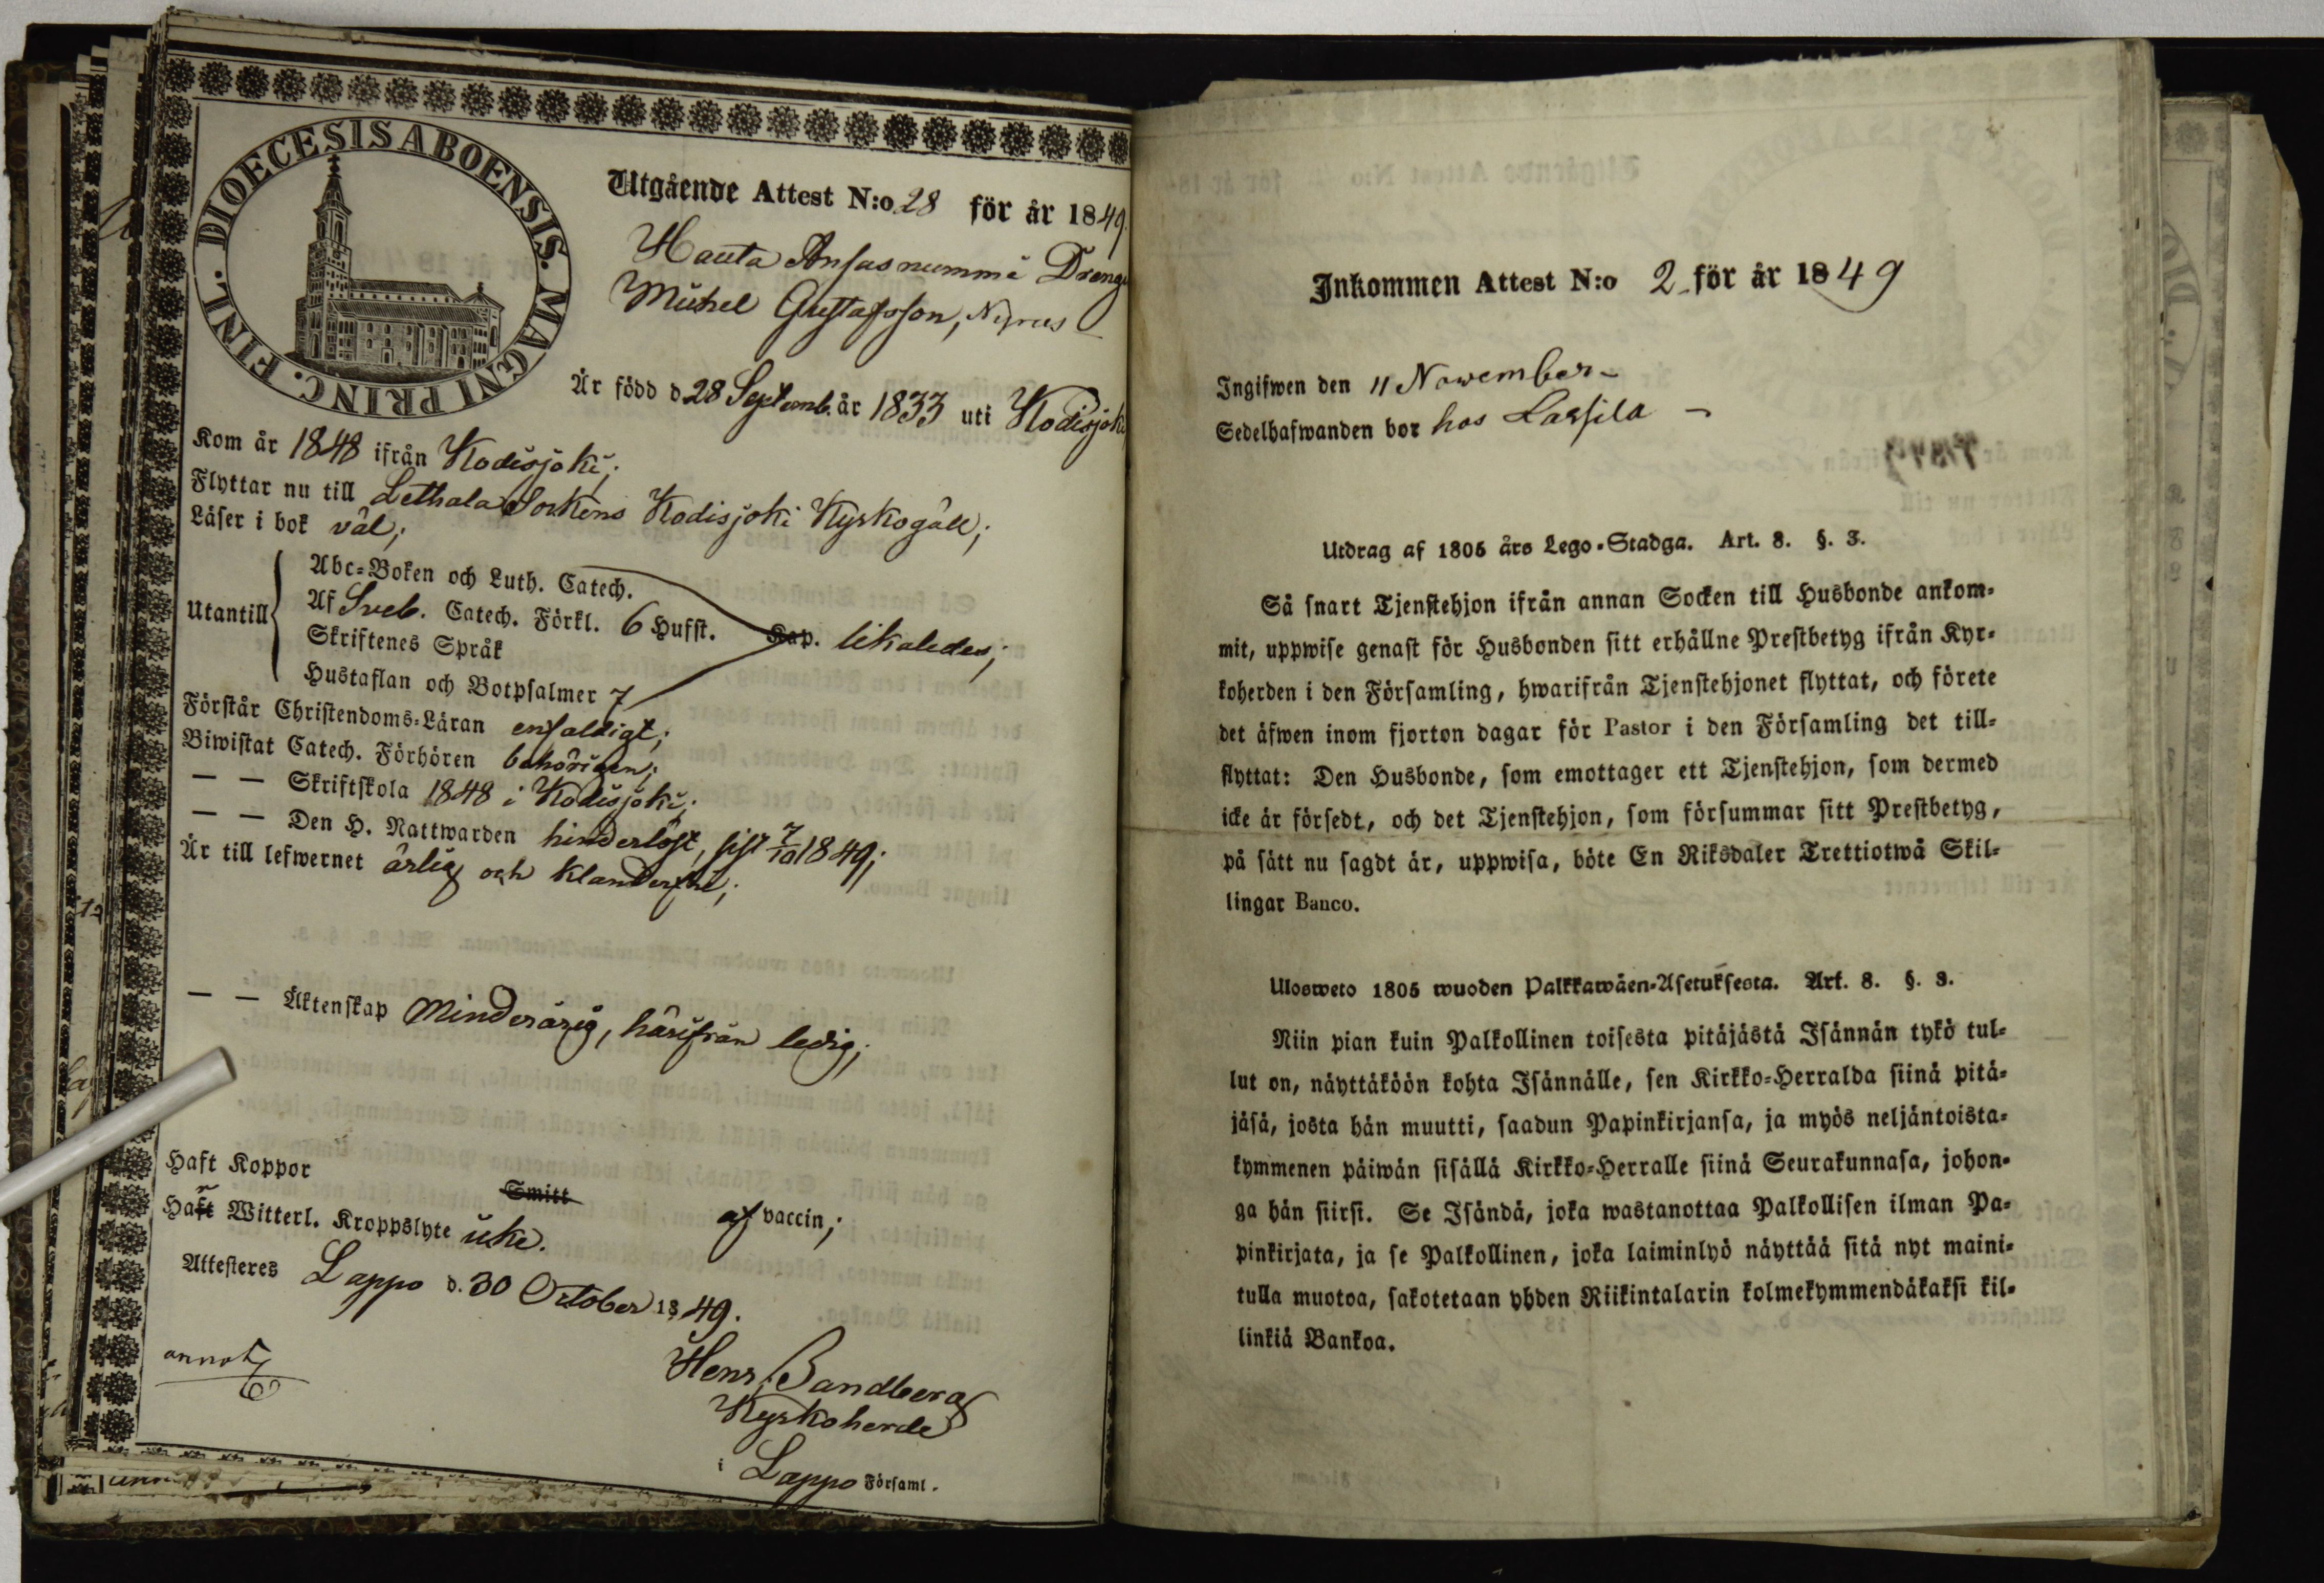 DIOECESIS ABOENSIS. MAGNI PRINC. FINL.
Utgående Attest N:o 28 för år 1849.
Hauta Ansasnummi Dreng
Michel Gustafsson,
Är född d 28 Septemb. år 1833 uti Kodisjoki
Kom år 1848 ifrån Kodisjoki;
Flyttar nu till Lethala Sockens Kodisjoki Kyrkogäll;
Läser i bok väl;
Utantill
Abc-Boken och Luth. Catech.
Af Sveb. Catech. Förkl. 6 Hufst. Kap. likaledes;
Skriftenes Språk
Hustaflan och Botpsalmer 7
Förstår Christendoms-Läran enfaldigt;
Biwistat Catech. Förhören behörigen;
— — Skriftskola 1848 i Kodisjoki;
— — Den H. Nattwarden hinderlöst, sist 7/10 1849;
Är till lefwernet ärlig och klanderfri;
— — Äktenskap Minderårig, härifrån ledig;
Haft Koppor Smitt af vaccin;
Har Witterl. Kroppslyte icke.
Attesteras Lappo d. 30 October 1849.
annot
Henr. Sandberg
Kyrkoherde
i Lappo Församl.
Inkommen Attest N:o 2 för år 1849
Ingifwen den 11 November –
Sedelhafwanden bor hos Lassila –
Utdrag af 1805 års Lego-Stadga. Art. 8. §. 3.
Så snart Tjenstehjon ifrån annan Socken till Husbonde ankom-
mit, uppwise genast för Husbonden sitt erhållne Prestbetyg ifrån Kyr-
koherden i den Församling, hwarifrån Tjenstehjonet flyttat, och förete
det äfwen inom fjorton dagar för Pastor i den Församling det till-
flyttat: Den Husbonde, som emottager ett Tjenstehjon, som dermed
icke är försedt, och det Tjenstehjon, som försummar sitt Prestbetyg,
på sätt nu sagdt är, uppwisa, böte En Riksdaler Trettiotwå Skil-
lingar Banco.
Ulosweto 1805 wuoden Palkkawäen-Asetuksesta. Art. 8. §. 3.
Niin pian kuin Palkollinen toisesta pitäjästä Isännän tykö tul-
lut on, näyttäköön kohta Isännälle, sen Kirkko-Herralda siinä pitä-
jäsä, josta hän muutti, saadun Papinkirjansa, ja myös neljäntoista-
kymmenen päiwän sisällä Kirkko-Herralle siinä Seurakunnasa, johon-
ga hän siirsi. Se Isändä, joka wastanottaa Palkollisen ilman Pa-
pinkirjata, ja se Palkollinen, joka laiminlyö näyttää sitä nyt maini-
tulla muotoa, sakotetaan yhden Riikintalarin kolmekymmendäkaksi kil-
linkiä Bankoa.